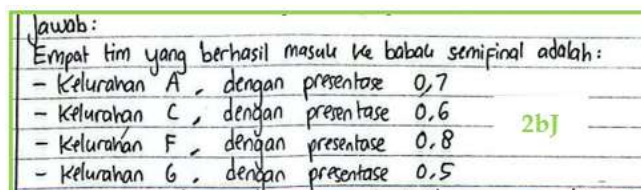 Jawab:
Empat tim yang berhasil masuk ke babak semifinal adalah:
- Kelurahan A, dengan presentase 0,7
- Kelurahan C, dengan presentase 0.6
- Kelurahan F, dengan presentase 0.8
- Kelurahan G, dengan presentase 0.5
2bJ